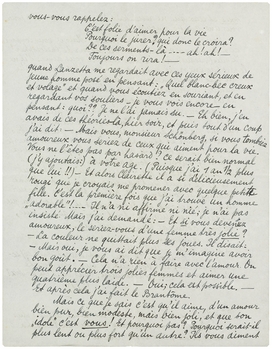 vous-vous rappelez:
C'est folie d'aimer pour la vie
Pourquoi le jurer, qui donc le croira?
De ces serments-là ---- ah! ah!
Toujours on rira!
quand me regardait avec ces yeux sérieux de
jeune homme et en pensant: "Quel blanc-bec creux
et volage" et quand vous écoutiez en souriant, et en
regardant vos souliers. Je vous vois encore - en
pensant: quoi?? Je ne l'ai jamais su. - Eh bien, j'en
avais de ces hier soir, et puis tout d'un coup
j'ai dit: - Mais vous, monsieur, si vous tombiez
amoureux vous seriez de ceux qui aiment pour la vie.
Vous ne l'êtes pas par hasard? Ce serait bien normal
(j'y ajoutais) à votre âge (Puisque j'ai 5 ans plus
que lui!!) - Et alors il a délicieusement
rougi que je croyais me promener avec quelque petite
fille. C'est la première fois que j'ai trouvé un homme
adorable!! - Il n'a ni affirmé ni nié; je n'ai pas
insisté. Mais j'ai demandé: - Et si vous deveniez
amoureux, le seriez-vous d'une femme très jolie?
- la couleur ne quittait plus ses joues. Il disait:
- Mais oui, je vous ai dit que je m'imagine avoir
bon goût. - Cela n'a rien à faire avec l'amour. On
peut apprécier trois jolies femmes et aimer une
quatrième plus laide. - Oui, cela est possible. -
Et après cela j'ai fait le Brantôme.
Mais ce que je sais c'est qu'il aime, d'un amour
bien pur, bien modeste, mais bien joli, et que son
'idole' c'est vous! Et pourquoi pas? Pourquoi serait-il
plus lent ou plus fort qu'un autre? Ils vous aiment